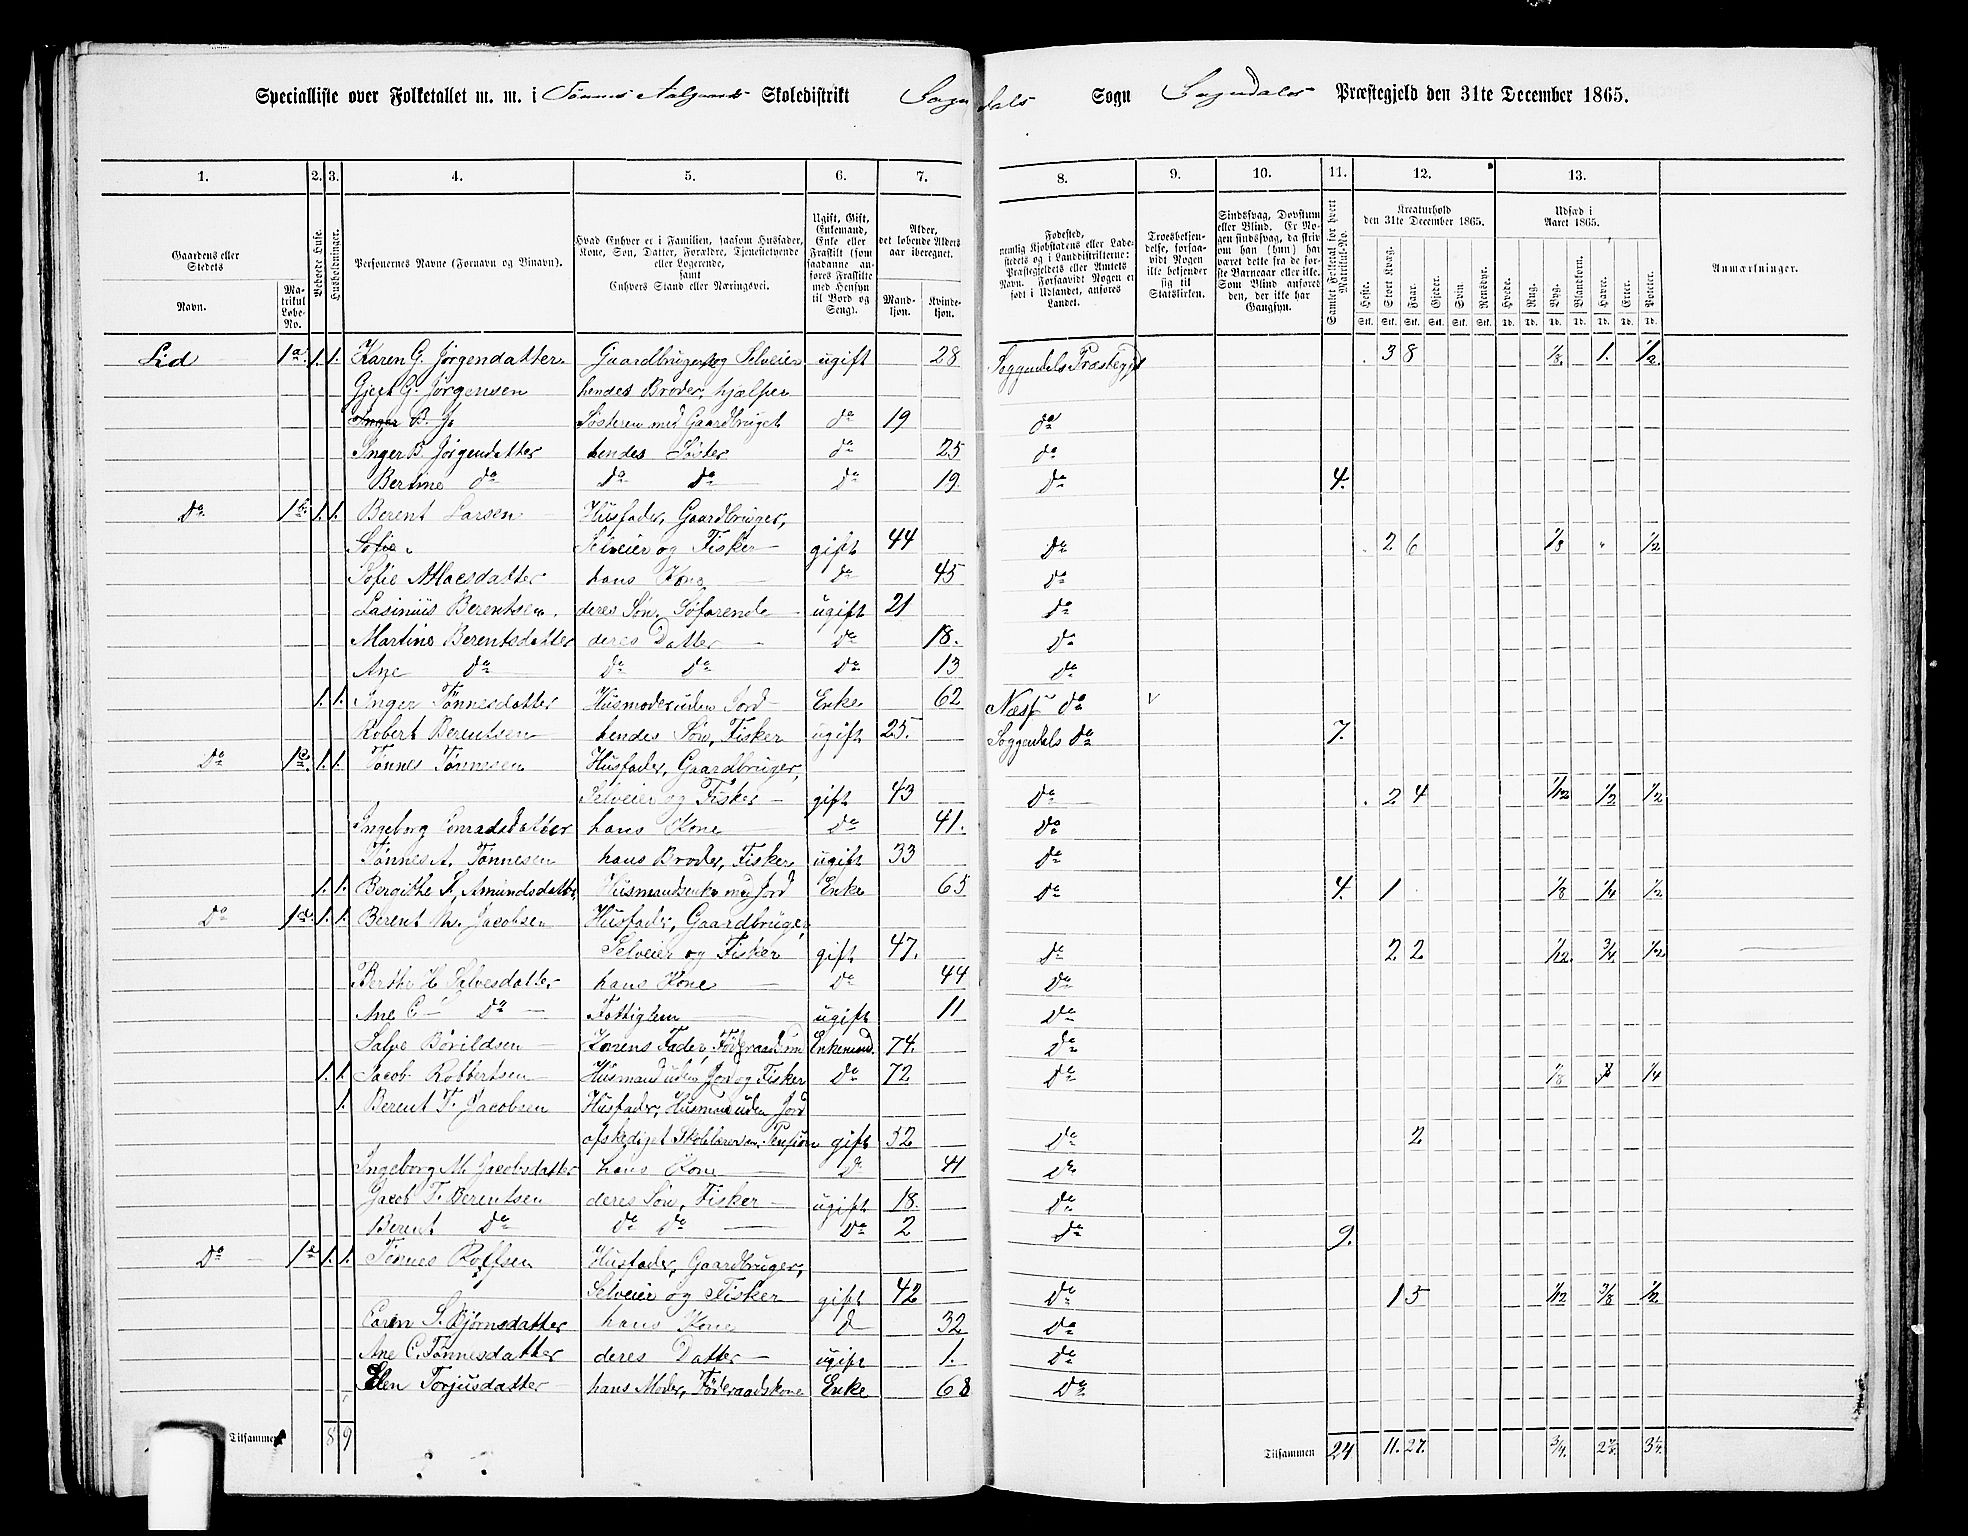 Specialliste over Folketallet m. m. i Tønnes Aalgaards Skoledistrikt Sogndals Sogn Sogndals Præstegjeld den 31te December 1865.
1. 2. 3. 4. 5. 6. 7. 8. 9. 10. 11. 12. 13.
Gaardens eller Stedets
Navn.
Matrikul Løbe-No.
Beboede Huse.
Husholdninger.
Personernes Navne (Fornavn og Binavn).
Hvad Enhver er i Familien, saasom Husfader, Kone, Søn, Datter, Forældre, Tjenestetyende eller Logerende,
samt
Enhvers Stand eller Næringsvei.
Ugift, Gift, Enkemand, Enke eller Fraskilt (som saadanne anføres Fraskilte med Hensyn til Bord og Seng).
Alder, det løbende Alders aar iberegnet.
Mandkjøn. Kvindekjøn.
Fødested, nemlig Kjøbstadens eller Ladestedets og i Landdistrikterne: Præstegjeldets eller Amtets Navn. Forsaavidt Nogen er født i Udlandet, anføres Landet.
Troesbekjendelse, forsaavidt Nogen ikke bekjender sig til Statskirken.
Sindssvag, Døvstum eller Blind. Er Nogen sindssvag, da skrives om han (hun) har været dette fra de første Barneaar eller ikke. Som Blind anføres den, der ikke har Gangsyn.
Samlet Folketal for hvert Matrikul-No.
Kreaturhold den 31te December 1865.
Heste. Stort Kvæg. Faar. Gjeder. Svin. Rensdyr.
Udsæd i Aaret 1865.
Hvede. Rug. Byg. Blandkorn. Havre. Erter. Poteter.
Anmærkninger.
Lid 1a 1. 1. Karen G. Jørgendatter Gaardbruger og Selveier ugift 28 Soggendals Præstegjd 3 8 1/8 1. 1/2
Gjert G. Jørgensen hendes Broder, hjælper
Inger B. J. Søsteren med Gaardbruget do 19 do
Inger B. Jørgendatter hendes Søster do 25 do
Bertine do do do do 19 do 4.
Do 1b 1. 1. Berent Larsen Husfader, Gaardbruger,
Sofie Selveier og Fisker gift 44 do 2 6 1/3 1/2
Sofie Atlaesdatter hans Kone do 45 do
Lasinius Berentsen deres Søn, Søfarende ugift 21 do
Martine Berentsdatter deres Datter do 18. do
Ane do do do do 13 do
1. 1. Inger Tønnesdatter Husmoder uden Jord Enke 62 Næss do
Robert Berentsen hendes Søn, Fisker ugift 25. Soggendals do 7.
Do 1c 1. 1. Tønnes Tønnesen Husfader, Gaardbruger,
Selveier og Fisker gift 43 do 2 4 1/12 1/2 1/2
Ingeborg Conradsdatter hans Kone do 41. do
Tønnes A. Tønnesen hans Broder, Fisker ugift 33 do
1. 1. Bergithe T. Amundsdatter Husmandsenke med Jord Enke 65 do 4. 1 1/8 1/4 1/2
Do 1d 1. 1. Berent M. Jacobsen Husfader, Gaardbruger,
Selveier og Fisker gift 47. do 2 2 1/12 3/4 1/2
Berthe H. Salvesdatter hans Kone do 44 do
Ane C. do Fattiglem ugift 11 do
Salve Børildsen Konens Fader, Føderaadsm Enkemand. 74. do
1. 1. Jacob Robbertsen Husmand uden Jord og Fisker do 72 do 1/8 1/4
1. Berent T. Jacobsen Husfader, Husmand uden Jord
afskediget Skolelærer m. Pension gift 52 do 2
Ingeborg M. Jacobsdatter hans Kone do 41 do
Jacob T. Berentsen deres Søn, Fisker ugift 18. do
Berent do do do do 2 do 9.
Do 1e 1. 1. Tønnes Rolfsen Husfader, Gaardbruger,
Selveier og Fisker gift 42 do 1 5 1/12 3/8 1/2
Caren S. Bjørnsdatter hans Kone do 32 do
Ane C. Tønnesdatter deres Datter ugift 1. do
Elen Torjusdatter hans Moder, Føderaadskone Enke 68 do
Tilsammen 8 9 Tilsammen 24 11. 27. 3/4